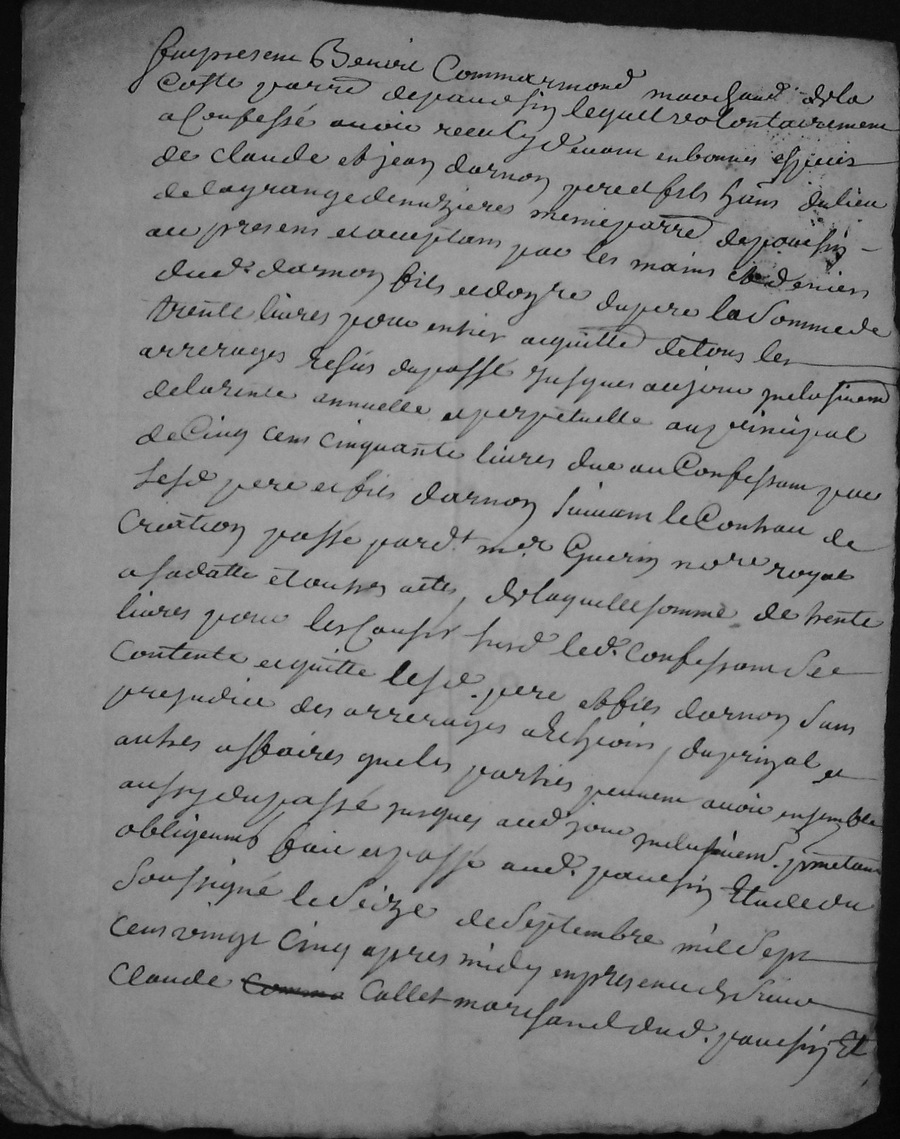 fut present Benoit Commarmond marchand de la
Coste parr.e de pavesin lequel volontairement
a Confessé avoir receu cy devant en bonnes especes
de claude et jean darnon pere et fils habns du lieu
de la grange de mezieres meme parr.e de pavesin
au present et acceptans par les mains et deniers
dud. darnon fils et do du pere la Somme de
trente livres pour entier acquitté de tous les
arrerages du passé jusques au jour inclusivem.t
de la rente annuelle et perpetuelle au principal
de Cinq cens cinquante livres due au Confessant par
lesd pere et fils darnon Suivant le Contrau de
Creation passé pard.t me Guerin no.re royal
a sa datte et autres actes, de laquelle somme de trente
livres pour les Causes susd led. Confessant Se
Contente et quitte lesd. pere et fils darnon Sans
prejudice des arrerages a echeoir, du prinpal et
autres affaires que les parties peuvent avoir ensemble
aussy du passé jusques aud jour inclusivem.t p.metant
obligeants fait et passé aud. pavesin Etude du
Soussigné le Seize de Septembre mil Sept
Cens vingt Cinq apres midy en presence de Sieur
Claude Comma Collet marchand dud. pavesin Et